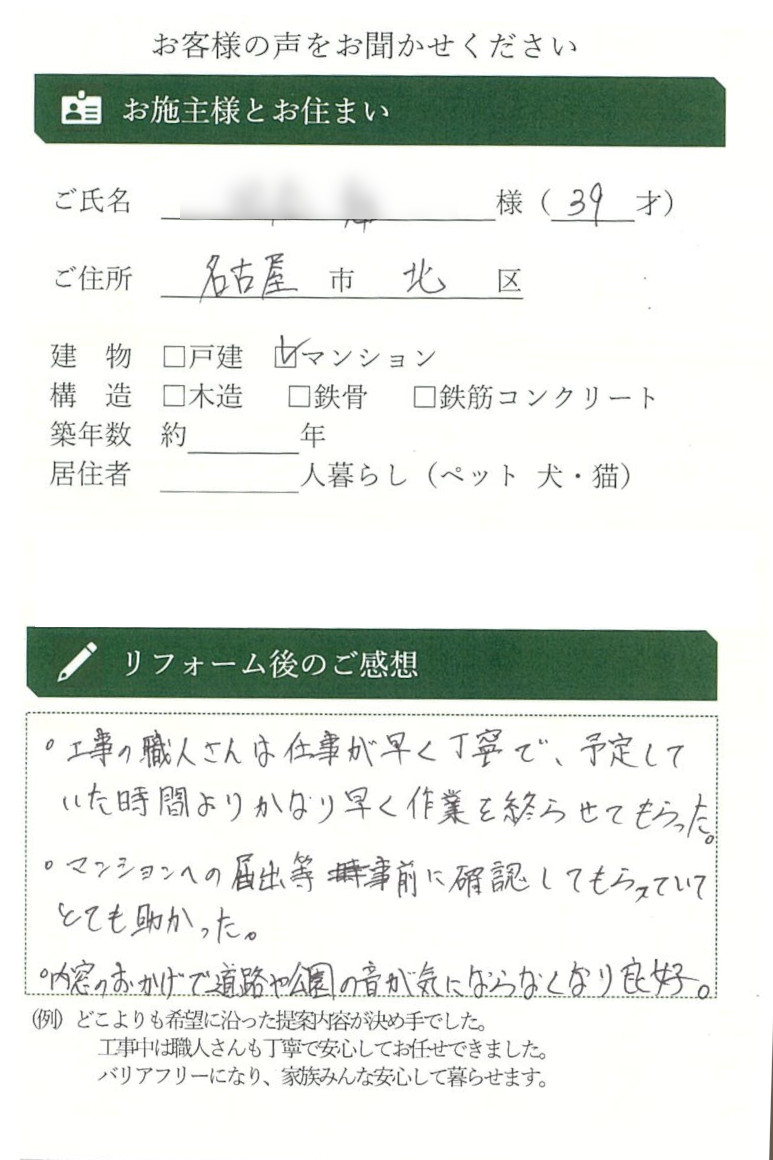 お客様の声をお聞かせください
お施主様とお住まい
ご氏名 様（39才）
ご住所 名古屋 市 北 区
建 物 □戸建 ☑マンション
構 造 □木造 □鉄骨 □鉄筋コンクリート
築年数 約 年
居住者 人暮らし（ペット 犬・猫）
リフォーム後のご感想
。工事の職人さんは仕事が早く丁寧で、予定して
いた時間よりかなり早く作業を終らせてもらった。
。マンションへの届出等事前に確認してもらえていて
とても助かった。
。内窓のおかげで道路や公園の音が気にならなくなり良好。
（例）どこよりも希望に沿った提案内容が決め手でした。
工事中は職人さんも丁寧で安心してお任せできました。
バリアフリーになり、家族みんな安心して暮らせます。